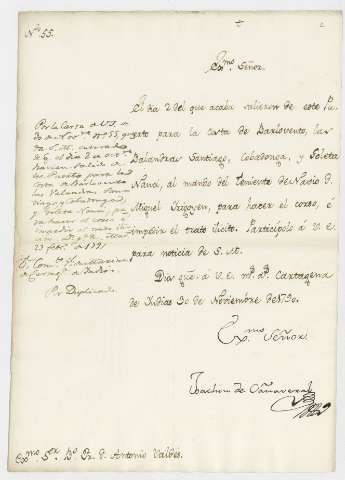 Nº 55.
Exmo. Señor.
El dia 2 del que acaba salieron de este Pu-
erto para la costa de Barlovento, las
Balandras Santiago, Cobadonga, y Goleta
Nanci, al mando del teniente de Navio D.
Miguel Irigoyen, para hacer el corso, é
impedir el trato ilicito. Participolo á V.E.
para noticia de S.M.
Dios gue. á V.E. ms. as. Cartagena
de Indias 30 de Noviembre de 1790.
Exmo. Señor.
Joachin de Cañaveral
Exmo. Sor. Bo. Fr. D. Antonio Valdés.
Por la Carta de V.S.
Nº 55,
S.M.
el dia 2
havian salido de
ese Puerto para la
Costa de Barlovento
las Balandras San-
tiago y Cobadonga
y Goleta Nanci, pa-
ra hacer el corso é
impedir el trato
23 febo. de 1791
Sr. Comte. de Marina de
Cartaga. de Indias.
Por Duplicado